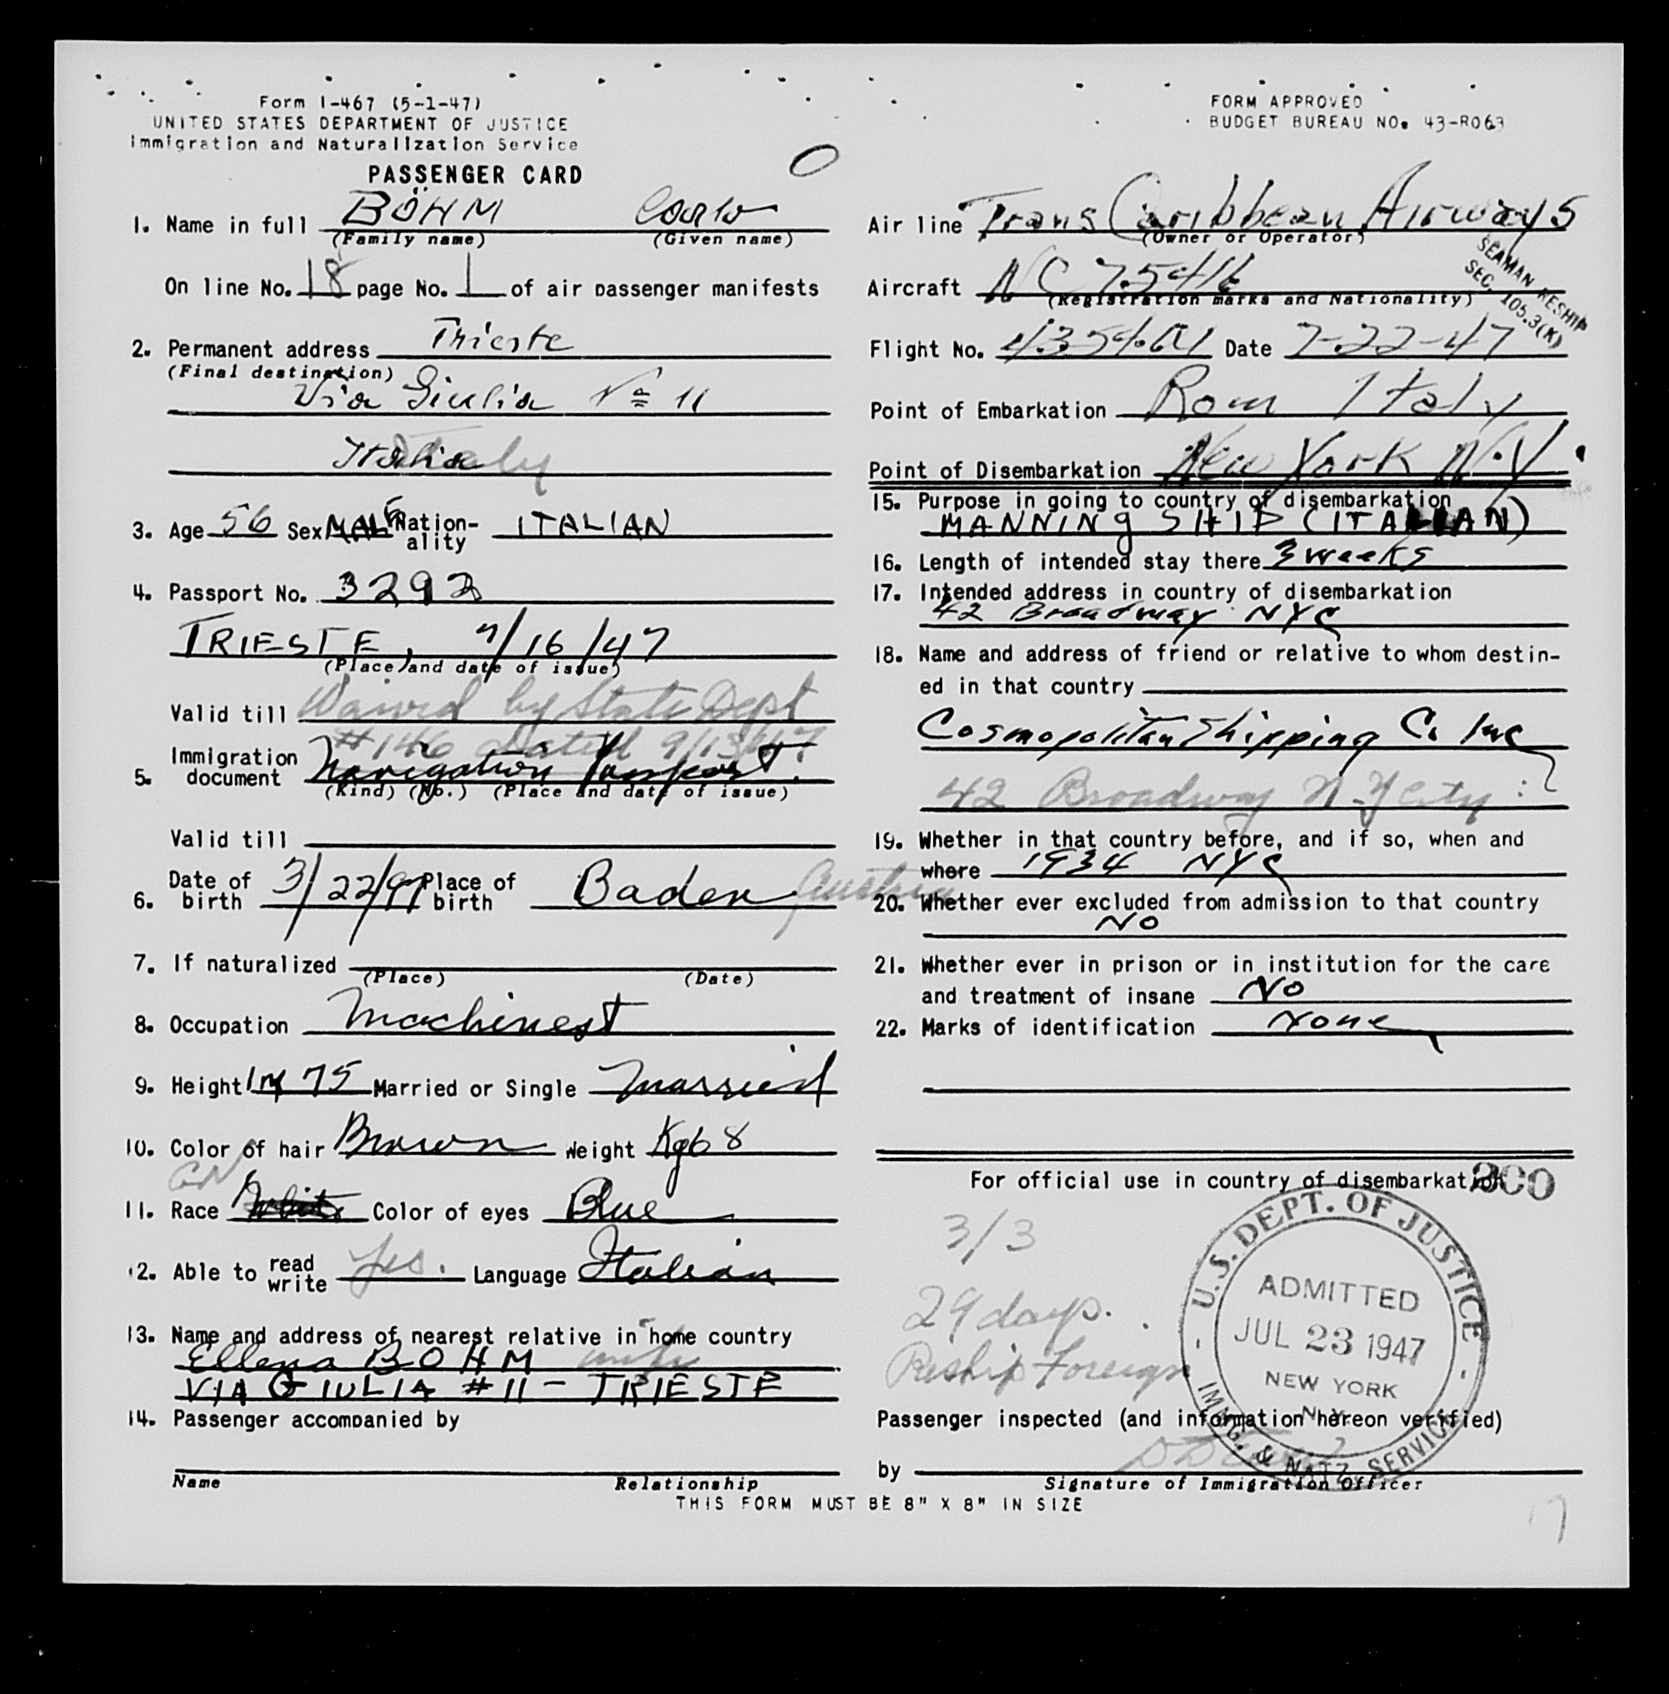 Form I-467 (5-1-47)
UNITED STATES DEPARTMENT OF JUSTICE
Immigration and Naturalization Service
PASSENGER CARD
FORM APPROVED
BUDGET BUREAU NO. 43-R063
1. Name in full BÖHM Carlo
(Family name) (Given name)
On line No. 18 page No. 1 of air passenger manifests
2. Permanent address Trieste
(Final destination)
Via Giulia No 11
Italia Italy
3. Age 56 Sex MALE Nationality ITALIAN
4. Passport No. 3292
TRIESTE, 7/16/47
(Place and date of issue)
Valid till Waived by State Dept
#146 dated 9/13/47
5. Immigration document Navigation Passport.
(Kind) (No.) (Place and date of issue)
Valid till
6. Date of birth 3/22/91 Place of birth Baden Austria
7. If naturalized
(Place) (Date)
8. Occupation Machinest
9. Height 1M 75 Married or Single Married
10. Color of hair Brown Weight Kg 68
11. Race White Color of eyes Blue
12. Able to read write Yes. Language Italian
13. Name and address of nearest relative in home country
Ellena BOHM wife
VIA GIULIA #11 - TRIESTE
14. Passenger accompanied by
Name Relationship
Air line Trans Caribbean Airways
(Owner or Operator)
SEAMAN RESHIP
SEC. 105.3(K)
Aircraft NC 75416
(Registration marks and Nationality)
Flight No. Date 7-22-47
Point of Embarkation Rom Italy
Point of Disembarkation New York N.Y.
15. Purpose in going to country of disembarkation
MANNING SHIP (ITALIAN)
16. Length of intended stay there 3 weeks
17. Intended address in country of disembarkation
42 Broadway NYC
18. Name and address of friend or relative to whom destined in that country
Cosmopolitan Shipping Co Inc
42 Broadway N.Y City
19. Whether in that country before, and if so, when and
where 1934 NYC
20. Whether ever excluded from admission to that country
NO
21. Whether ever in prison or in institution for the care
and treatment of insane NO
22. Marks of identification None
For official use in country of disembarkation
300
3/3
29 days.
Reship Foreign
U.S. DEPT. OF JUSTICE
ADMITTED
JUL 23 1947
NEW YORK
N.Y.
IMMG. & NATZ. SERVICE
Passenger inspected (and information hereon verified)
by
Signature of Immigration Officer
THIS FORM MUST BE 8" X 8" IN SIZE